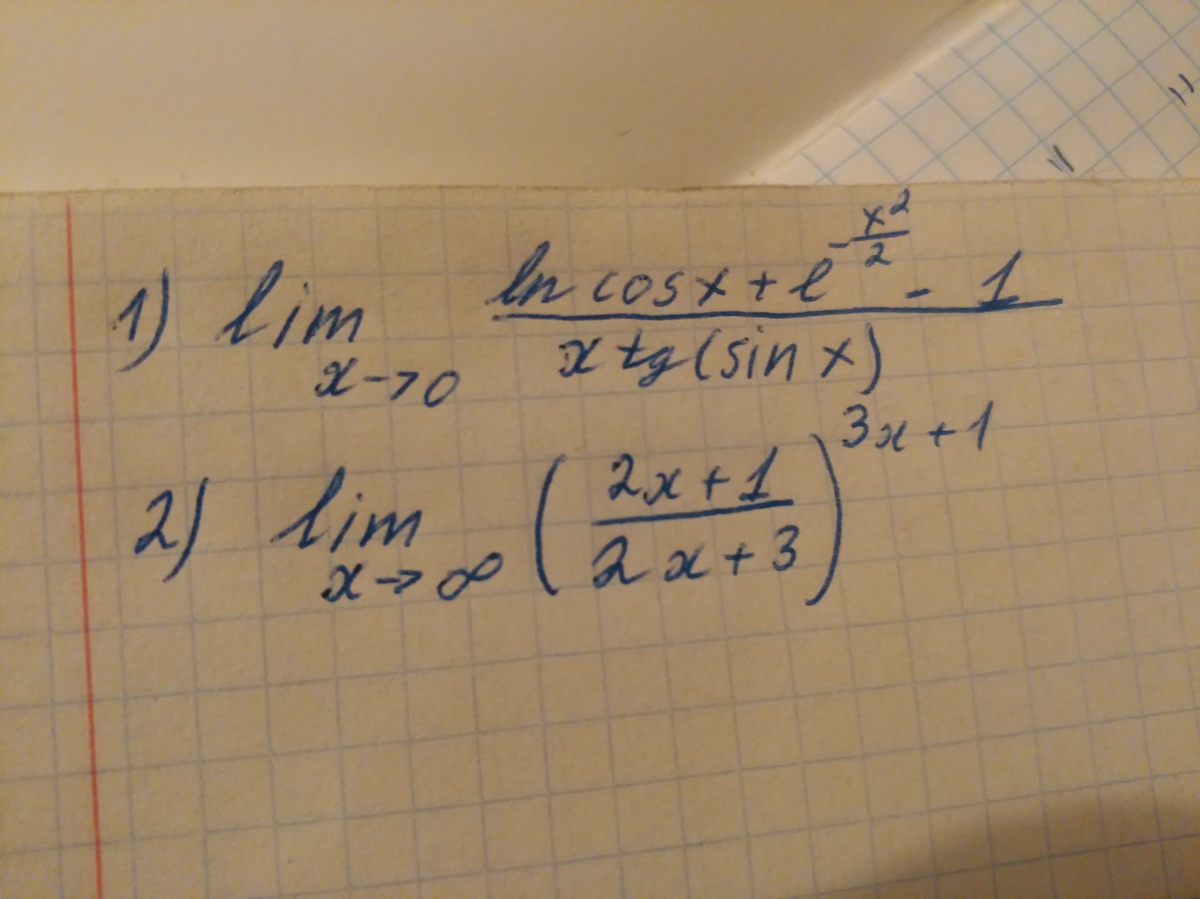 1) lim x→0 (ln cos x + e^(-x²/2) - 1) / (x tg(sin x))
2) lim x→∞ ((2x+1)/(2x+3))^(3x+1)